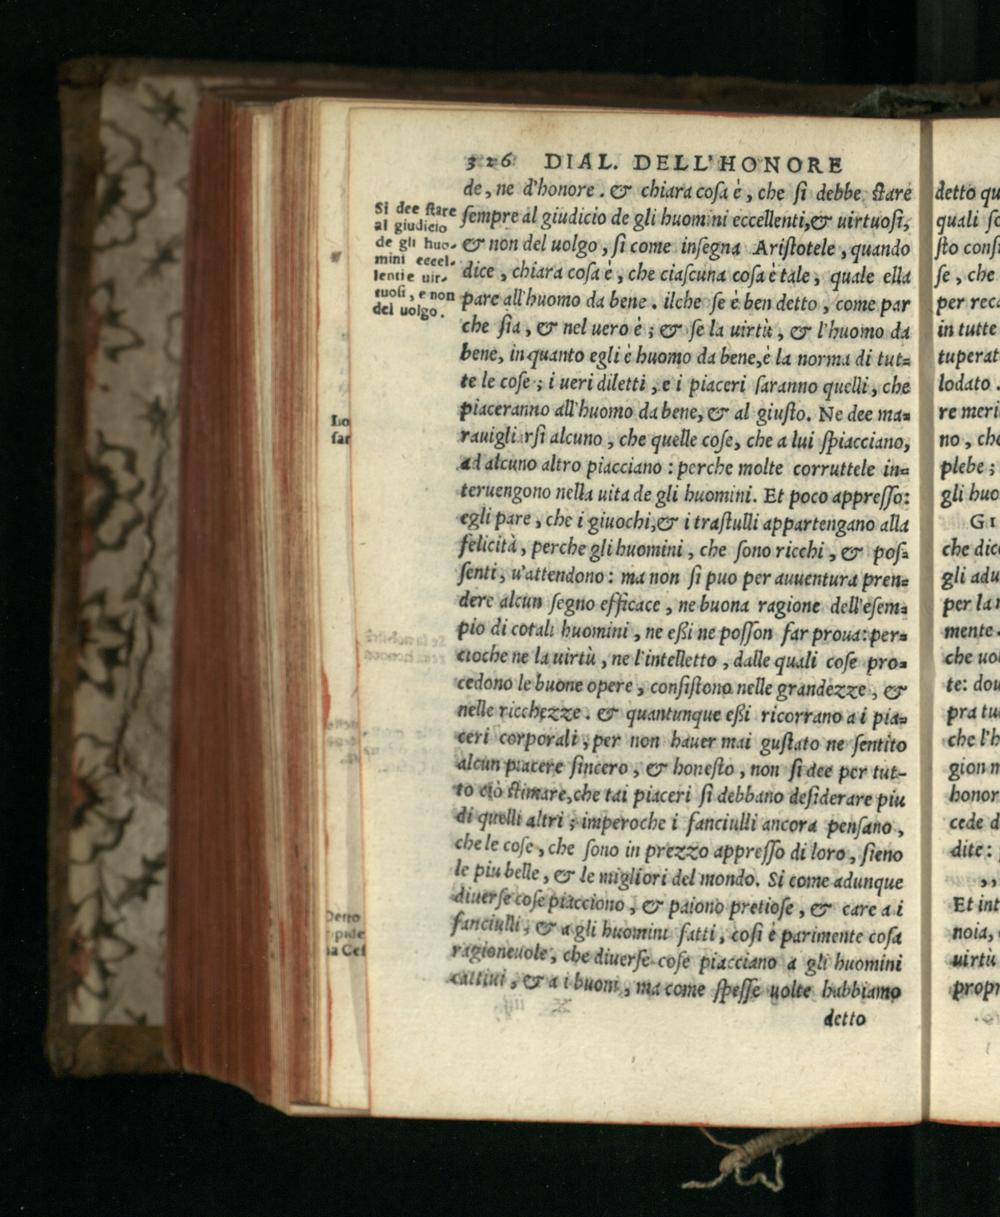 326 DIAL. DELL'HONORE
de, ne d'honore. & chiara coſa è, che ſi debbe ſtare
ſempre al giudicio de gli huomini eccellenti, & uirtuoſi,
& non del uolgo, ſi come inſegna Ariſtotele, quando
dice, chiara coſa è, che ciaſcuna coſa è tale, quale ella
pare all'huomo da bene. ilche ſe è ben detto, come par
che ſia, & nel uero è; & ſe la uirtù, & l'huomo da
bene, in quanto egli è huomo da bene, è la norma di tut=
te le coſe; i ueri diletti, e i piaceri ſaranno quelli, che
piaceranno all'huomo da bene, & al giuſto. Ne dee ma=
rauigliarſi alcuno, che quelle coſe, che a lui ſpiacciano,
ad alcuno altro piacciano: perche molte corruttele in=
teruengono nella uita de gli huomini. Et poco appreſſo:
egli pare, che i giuochi, & i traſtulli appartengano alla
felicità, perche gli huomini, che ſono ricchi, & poſ=
ſenti, u'attendono: ma non ſi puo per auuentura pren=
dere alcun ſegno efficace, ne buona ragione dell'eſem=
pio di cotali huomini, ne eßi ne poſſon far proua: per=
cioche ne la uirtù, ne l'intelletto, dalle quali coſe pro=
cedono le buone opere, conſiſtono nelle grandezze, &
nelle ricchezze. & quantunque eßi ricorrano a i pia=
ceri corporali, per non hauer mai guſtato ne ſentito
alcun piacere ſincero, & honeſto, non ſi dee per tut-
to ciò ſtimare, che tai piaceri ſi debbano deſiderare piu
di quelli altri; imperoche i fanciulli ancora penſano,
che le coſe, che ſono in prezzo appreſſo di loro, ſieno
le piu belle, & le migliori del mondo. Si come adunque
diuerſe coſe piacciono, & paiono pretioſe, & care a i
fanciulli, & a gli huomini fatti, coſi è parimente coſa
ragioneuole, che diuerſe coſe piacciano a gli huomini
cattiui, & a i buoni, ma come ſpeſſe uolte habbiamo
detto
Si dee ſtare
al giudicio
de gli huo-
mini eccel-
lenti e uir-
tuoſi, e non
del uolgo.
Lo
ſar
Detto
ipide
ia Ceſ
detto qu
quali ſo
ſto conſi
ſe, che
per reca
in tutte
tuperat
lodato.
re meri
no, che
plebe;
gli huo
GI
che dice
gli adu
per la
mente.
che uol
te: dou
pra tu
che l'h
gion n
honor
cede d
dite:
,,
Et int
noia,
uirtù
propr